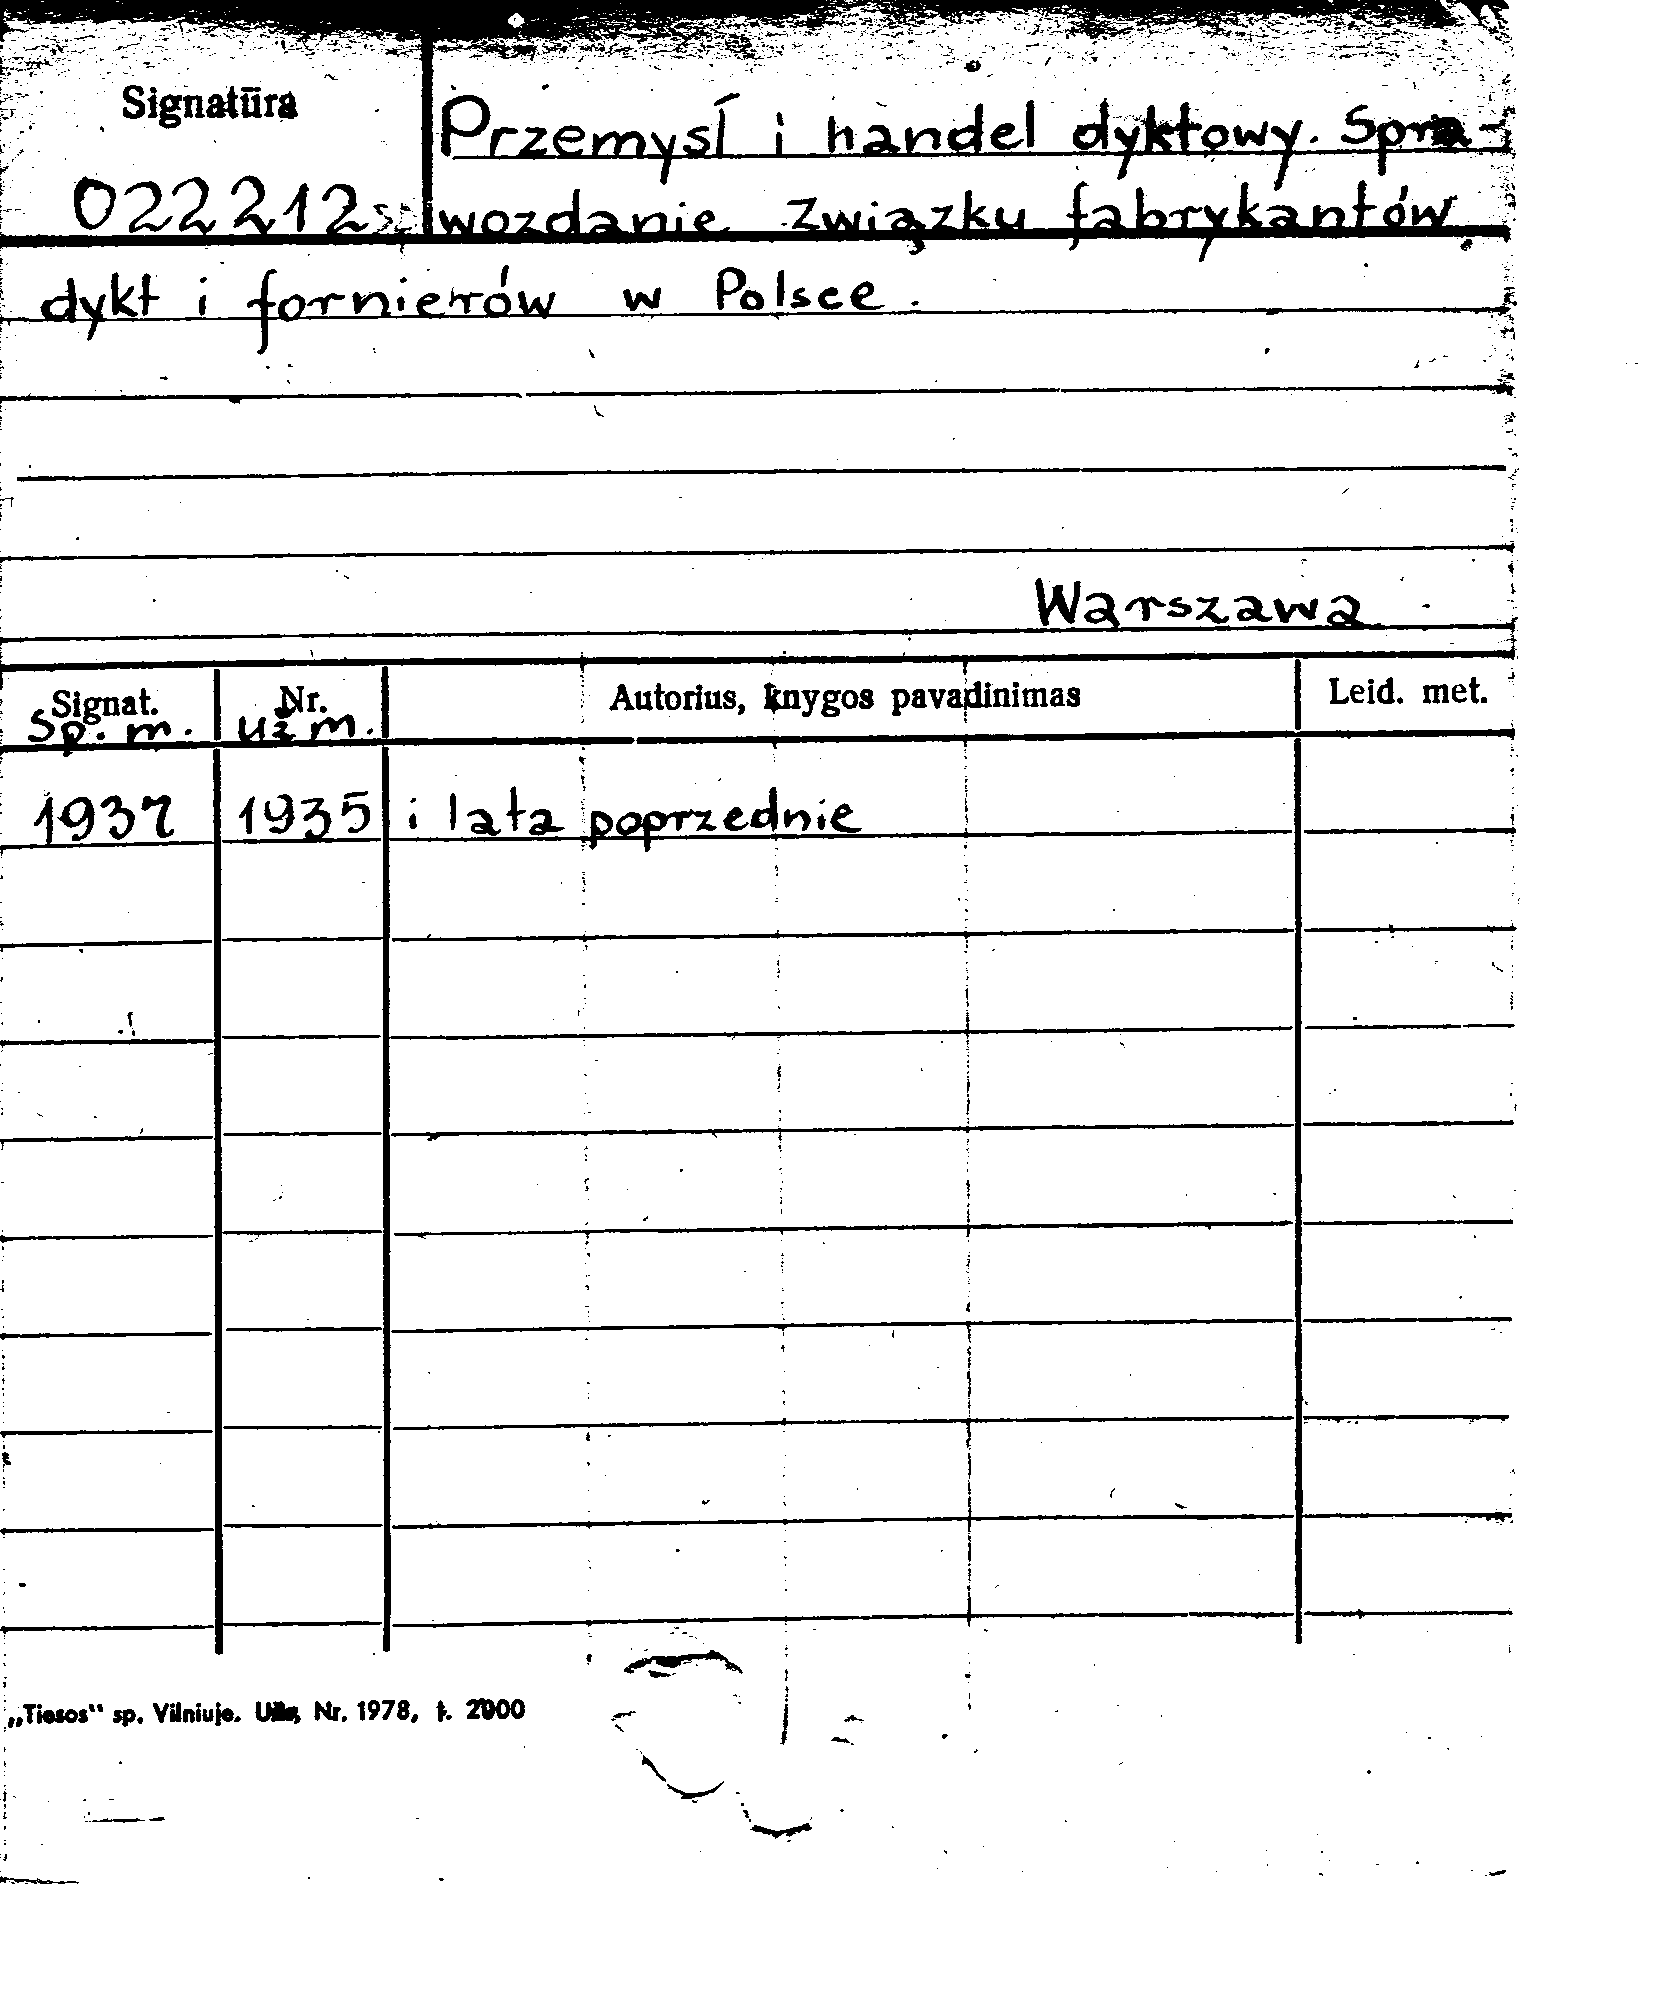 Signatūra
022212
Przemysł i handel dyktowy. Spra-
wozdanie Związku fabrykantów
dykt i fornierów w Polsce.
Warszawa
Signat. Nr. Autorius, knygos pavadinimas Leid. met.
Sp. m. už m.
1937 1935 i lata poprzednie
„Tiesos“ sp. Vilniuje. Nr. 1978, t. 2000